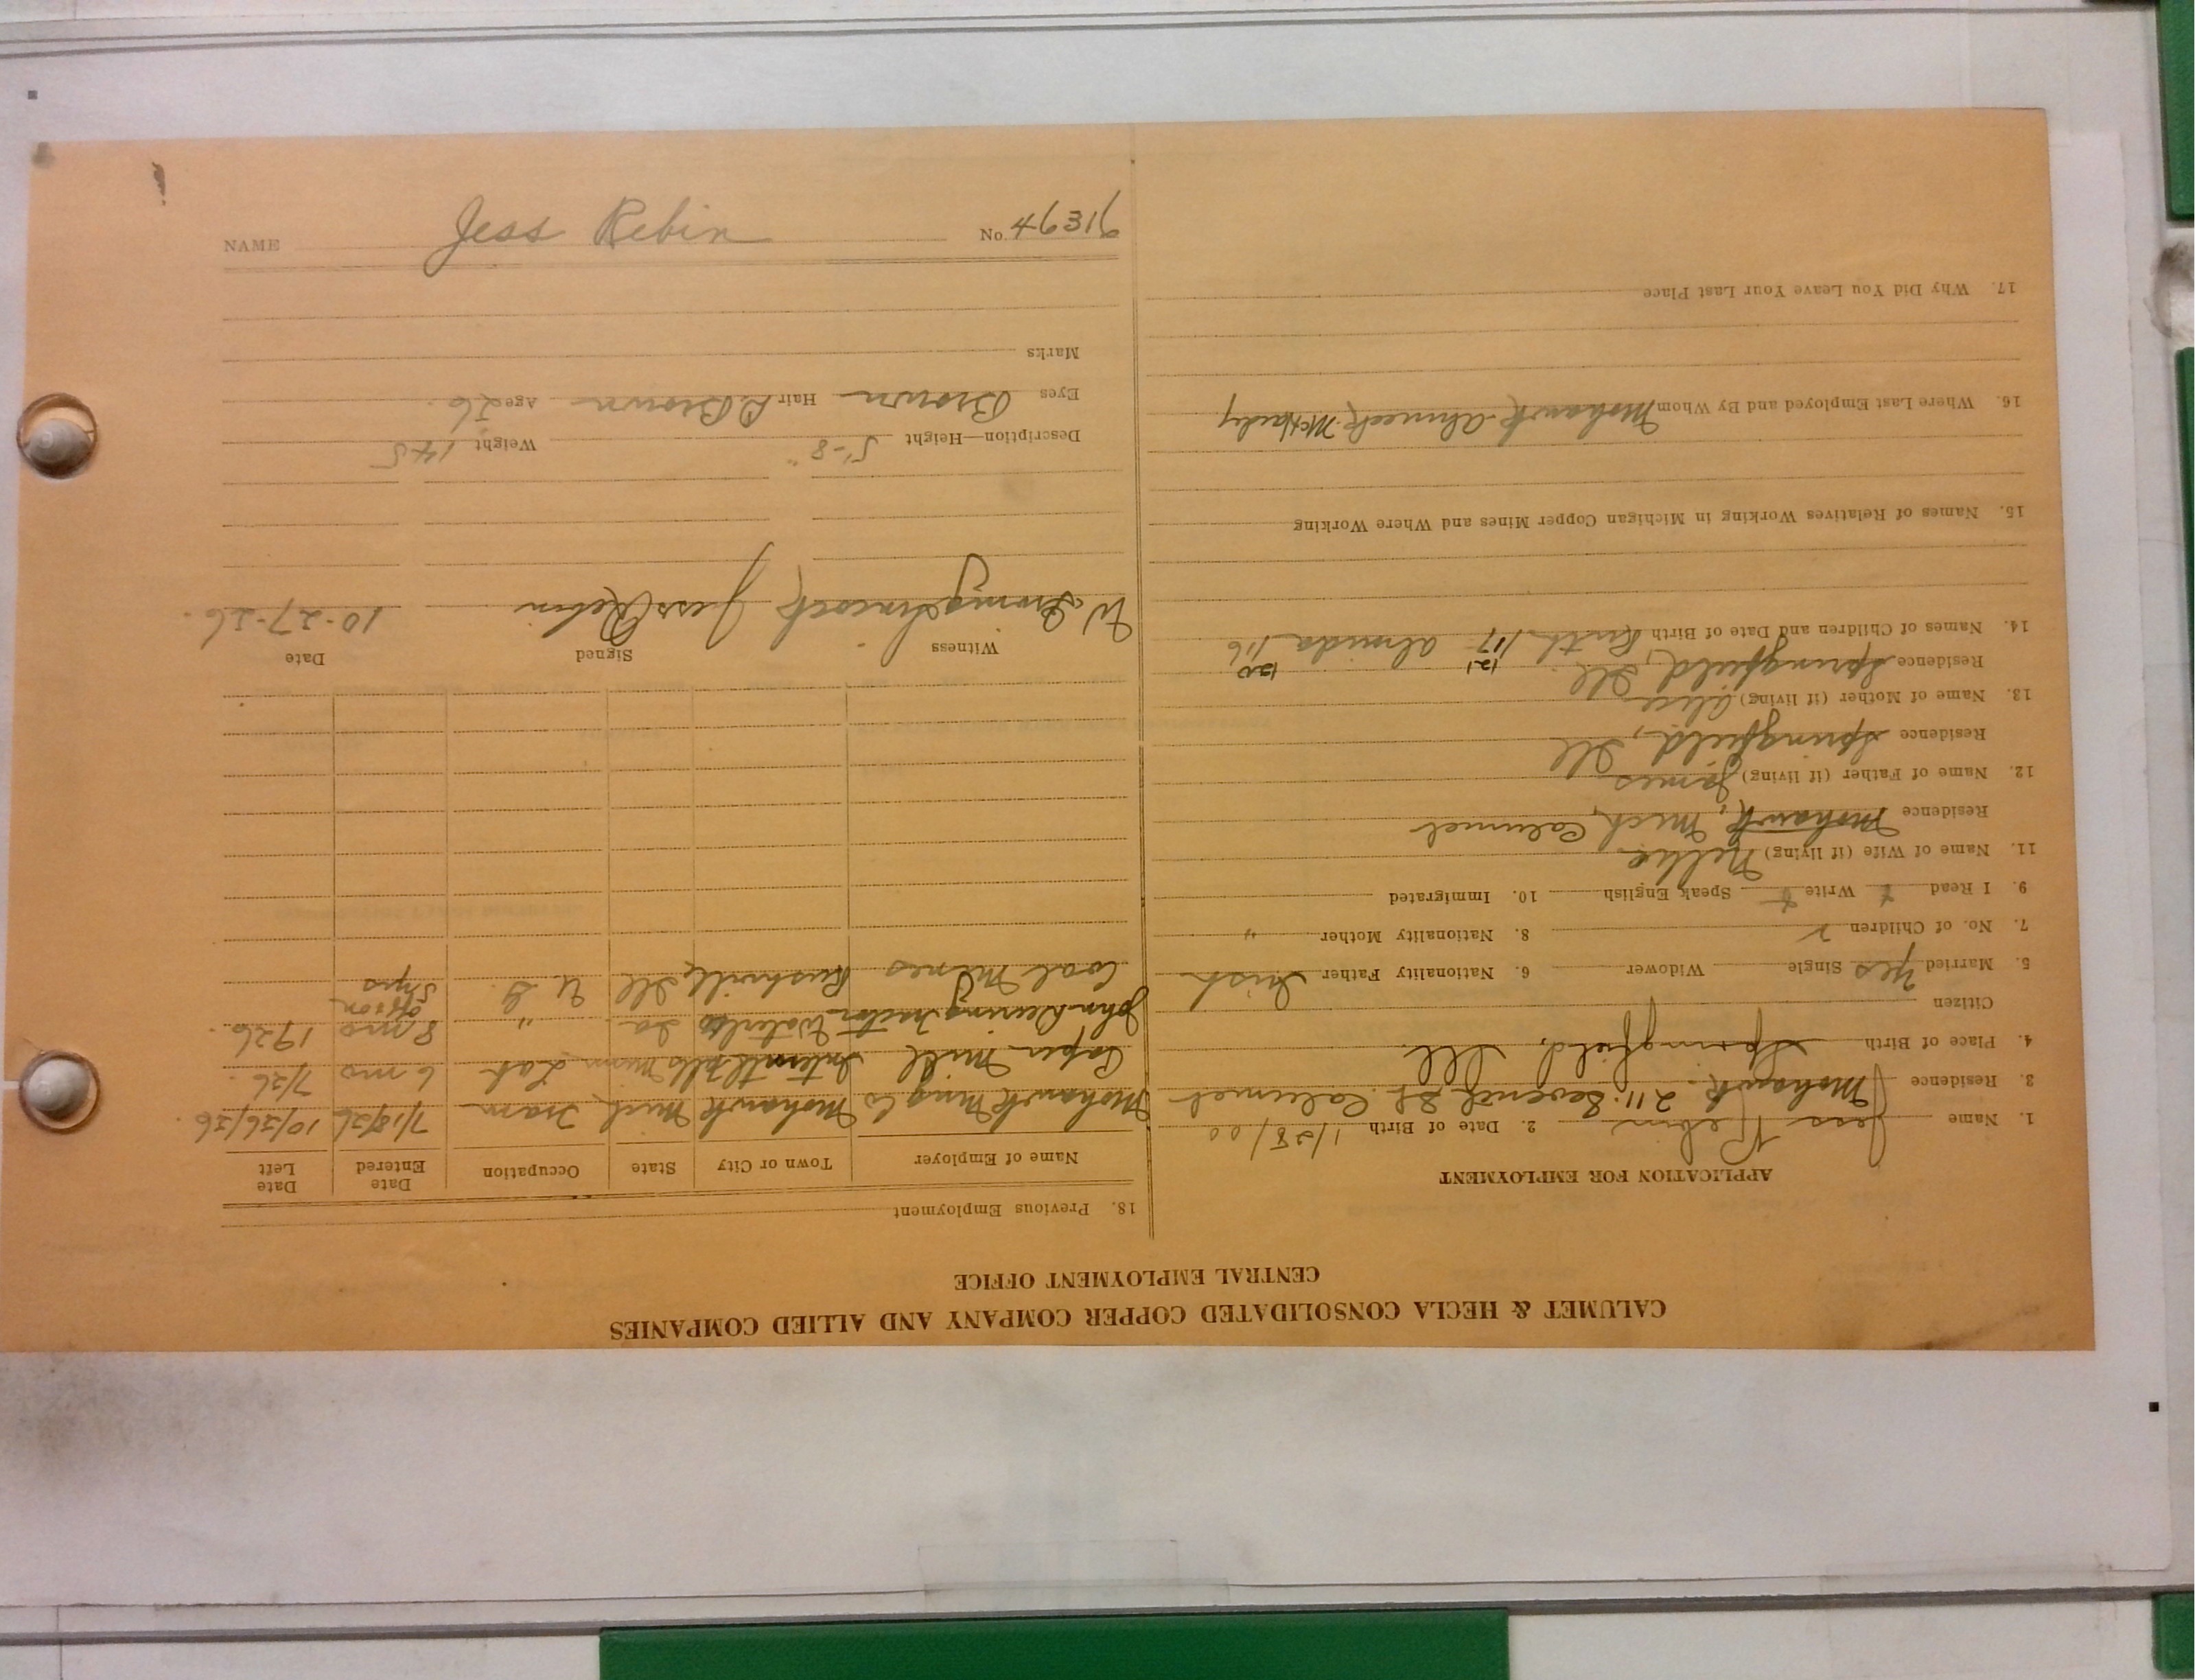 CALUMET & HECLA CONSOLIDATED COPPER COMPANY AND ALLIED COMPANIES
CENTRAL EMPLOYMENT OFFICE
APPLICATION FOR EMPLOYMENT
1. Name Jess Rebin 2. Date of Birth 1/28/00
3. Residence Mohawk 211 Seventh St. Calumet
4. Place of Birth Springfield, Ill.
Citizen
5. Married yes Single Widower 6. Nationality Father Irish
7. No. of Children 2 8. Nationality Mother "
9. I Read Write Speak English 10. Immigrated
11. Name of Wife (if living) Nellie
Residence Mohawk, Mich, Calumet
12. Name of Father (if living) James
Residence Springfield, Ill
13. Name of Mother (if living) Alice
Residence Springfield, Ill.
14. Names of Children and Date of Birth Ruth Almida
15. Names of Relatives Working in Michigan Copper Mines and Where Working
16. Where Last Employed and By Whom Mohawk-Ahmeek-
17. Why Did You Leave Your Last Place
18. Previous Employment
Name of Employer Town or City State Occupation Date Entered Date Left
Mohawk Mng Co Mohawk Mich. Tram 7/18/26 10/26/26
Paper Mill Internatl Falls Minn Lab 6 mo 7/26.
John Deering Tractor Waterloo Ia. " 8 mo 1926.
Coal Mines Rushville Ill U. G. off & on 5 yrs
Witness Signed Date
W. Jess Rebin 10-27-26.
Description—Height 5'-8" Weight 145
Eyes Brown Hair D. Brown Age 26.
Marks
NAME Jess Rebin No. 46316